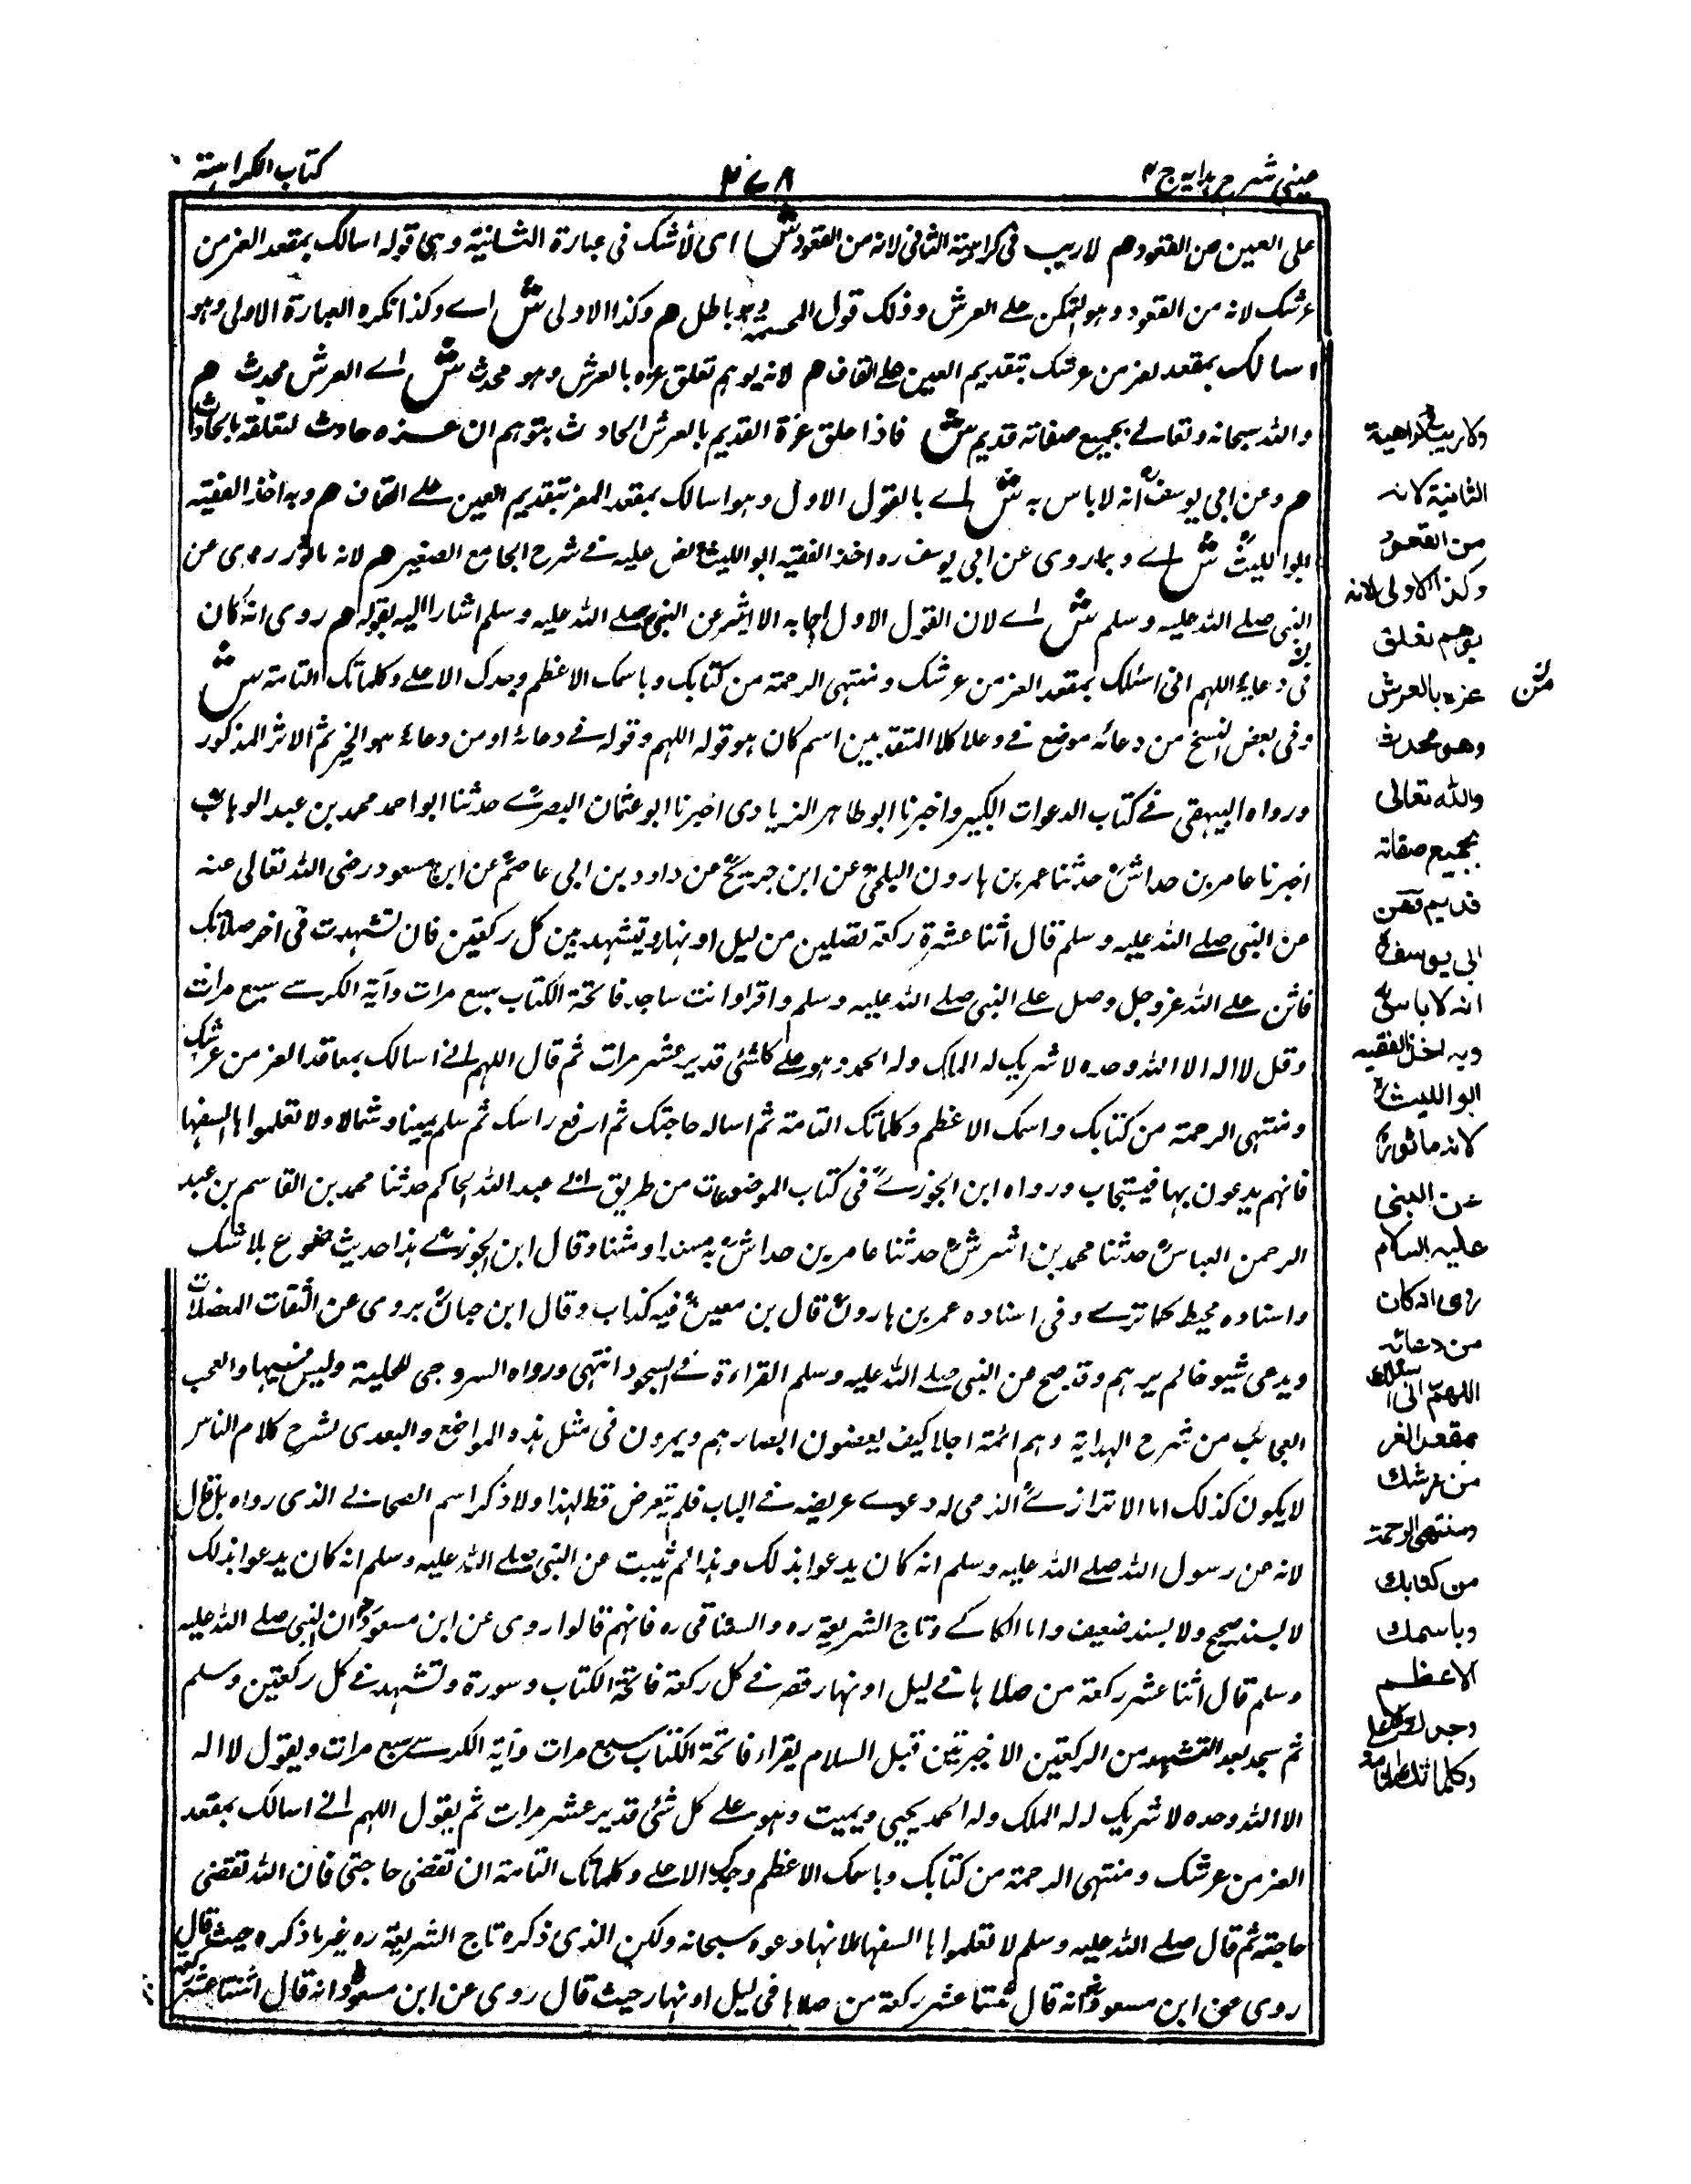 عینی شرح ہدایہ ج ۴
۴۷۸
کتاب الکراہیۃ
علی العین من القعود ھم لا ریب فی کراہیۃ الثانی لانہ من القعود ش ای لا شک فی عبارۃ الثانیۃ وہی قولہ اسالک بمقعد العز من
عرشک لانہ من القعود وہو التمکن علے العرش وذلک قول المجسمۃ وہو باطل ھم وکذا الاولی ش اے وکذا تکرہ العبارۃ الاولی وہو
اسالک بمعقد العز من عرشک بتقدیم العین علے القاف ھم لانہ یوہم تعلق عزہ بالعرش وہو محدث ش اے العرش محدث ھم
واللہ سبحانہ وتعالے بجمیع صفاتہ قدیم ش فاذا علق عزۃ القدیم بالعرش الحادث یتوہم ان عزہ حادث لتعلقہ بالحادث
ھم وعن ابی یوسف انہ لا باس بہ ش اے بالقول الاول وہو اسالک بمعقد العز بتقدیم العین علے القاف ھم وبہ اخذ الفقیہ
ابو اللیث ش اے وبما روی عن ابی یوسف رہ اخذ الفقیہ ابو اللیث نص علیہ فے شرح الجامع الصغیر ھم لانہ ماثور روی عن
النبی صلے اللہ علیہ وسلم ش اے لان القول الاول جا بہ الاثر عن النبی صلے اللہ علیہ وسلم اشار الیہ بقولہ ھم روی انہ کان
فی دعایہ اللہم انی اسئلک بمعقد العز من عرشک ومنتہی الرحمۃ من کتابک وباسمک الاعظم وجدک الاعلے وکلماتک التامۃ ش
وفی بعض النسخ من دعائہ موضع فے دعائہ کلا التقدیرین اسم کان ہو قولہ اللہم وقولہ فے دعائہ او من دعائہ ہو الخبر ثم الاثر المذکور
ورواہ البیہقی فے کتاب الدعوات الکبیر واخبرنا ابو طاہر الزیادی اخبرنا ابو عثمان البصرے حدثنا ابو احمد محمد بن عبد الوہاب
اخبرنا عامر بن خداش حدثنا عمر بن ہارون البلخی عن ابن جریج عن داود بن ابی عاصم عن ابن مسعود رضی اللہ تعالی عنہ
عن النبی صلے اللہ علیہ وسلم قال اثنتا عشرۃ رکعۃ تصلین من لیل او نہار وتتشہد بین کل رکعتین فان تشہدت فی اخر صلاتک
فاثن علے اللہ عزوجل وصل علے النبی صلے اللہ علیہ وسلم واقرا وانت ساجد فاتحۃ الکتاب سبع مرات وآیۃ الکرسے سبع مرات
وقل لا الہ الا اللہ وحدہ لا شریک لہ لہ الملک ولہ الحمد وہو علے کل شئی قدیر عشر مرات ثم قال اللہم انے اسالک بمعاقد العز من عرشک
ومنتہی الرحمۃ من کتابک واسمک الاعظم وکلماتک التامۃ ثم اسالہ حاجتک ثم ارفع راسک ثم سلم یمینا وشمالا ولا تعلموا ہا السفہا
فانہم یدعون بہا فیستجاب ورواہ ابن الجوزے فی کتاب الموضوعات من طریق ابے عبد اللہ الحاکم حدثنا محمد بن القاسم بن عبد
الرحمن العباس حدثنا محمد بن اشرش حدثنا عامر بن خداش بہ سندا ومتنا وقال ابن الجوزے ہذا حدیث موضوع بلا شک
واسنادہ محیط کما ترے وفی اسنادہ عمر بن ہارون قال بن معین فیہ کذاب وقال ابن حبان یروی عن الثقات المعضلات
ویدعی شیوخا لم یرہم وقد صح عن النبی صلے اللہ علیہ وسلم القراءۃ فے السجود انتہی ورواہ السروجی للحلیۃ ولیس فیہا والعجب
العجائب من شرح الہدایۃ وہم ائمۃ اجلا کیف یغضون ابصارہم ویمرون فی مثل ہذہ المواضع والتعدی لشرح کلام الناس
لا یکون کذلک اما الاترازے الذی لہ دعوے عریضۃ فے الباب فلم یتعرض قط لہذا ولا ذکر اسم الصحابے الذی رواہ بل قال
لانہ عن رسول اللہ صلے اللہ علیہ وسلم انہ کان یدعوا بذلک وہذا لم یثبت عن النبی صلے اللہ علیہ وسلم انہ کان یدعوا بذلک
لا بسند صحیح ولا بسند ضعیف واما الکاکے وتاج الشریعۃ رہ والسغناقی رہ فانہم قالوا روی عن ابن مسعود ان النبی صلے اللہ علیہ
وسلم قال اثنا عشر رکعۃ من صلاہا فے لیل او نہار قرء فے کل رکعۃ فاتحۃ الکتاب وسورۃ وتشہد فے کل رکعتین وسلم
ثم سجد بعد التشہد من الرکعتین الاخیرتین قبل السلام یقراء فاتحۃ الکتاب سبع مرات وآیۃ الکرسے سبع مرات ویقول لا الہ
الا اللہ وحدہ لا شریک لہ لہ الملک ولہ الحمد یحیی ویمیت وہو علے کل شئی قدیر عشر مرات ثم یقول اللہم انے اسالک بمقعد
العز من عرشک ومنتہی الرحمۃ من کتابک وباسمک الاعظم وجدک الاعلے وکلماتک التامۃ ان تقضی حاجتی فان اللہ تقضی
حاجتہ ثم قال صلے اللہ علیہ وسلم لا تعلموا ہا السفہا لانہا دعوہ سبحانہ ولکن الذی ذکرہ تاج الشریعۃ رہ غیر ما ذکرہ حیث قال
روی عن ابن مسعود انہ قال ثنتا عشر رکعۃ من صلاہا فی لیل او نہار حیث قال روی عن ابن مسعود انہ قال اثنتا عشر رکعۃ
متن
ولا ریب فی کراھیۃ
الثانیۃ لانہ
من القعود
وکذا الاولی لانہ
یوھم تعلق
عزہ بالعرش
وھو محدث
واللہ تعالی
بجمیع صفاتہ
قدیم وعن
ابی یوسف
انہ لا باس بہ
وبہ اخذ الفقیہ
ابو اللیث
لانہ ماثور
عن النبی
علیہ السلام
روی انہ کان
من دعائہ
اللھم انی اسئلک
بمقعد العز
من عرشک
ومنتھی الرحمۃ
من کتابک
وباسمک
الاعظم
وجدک الاعلی
وکلماتک التامۃ